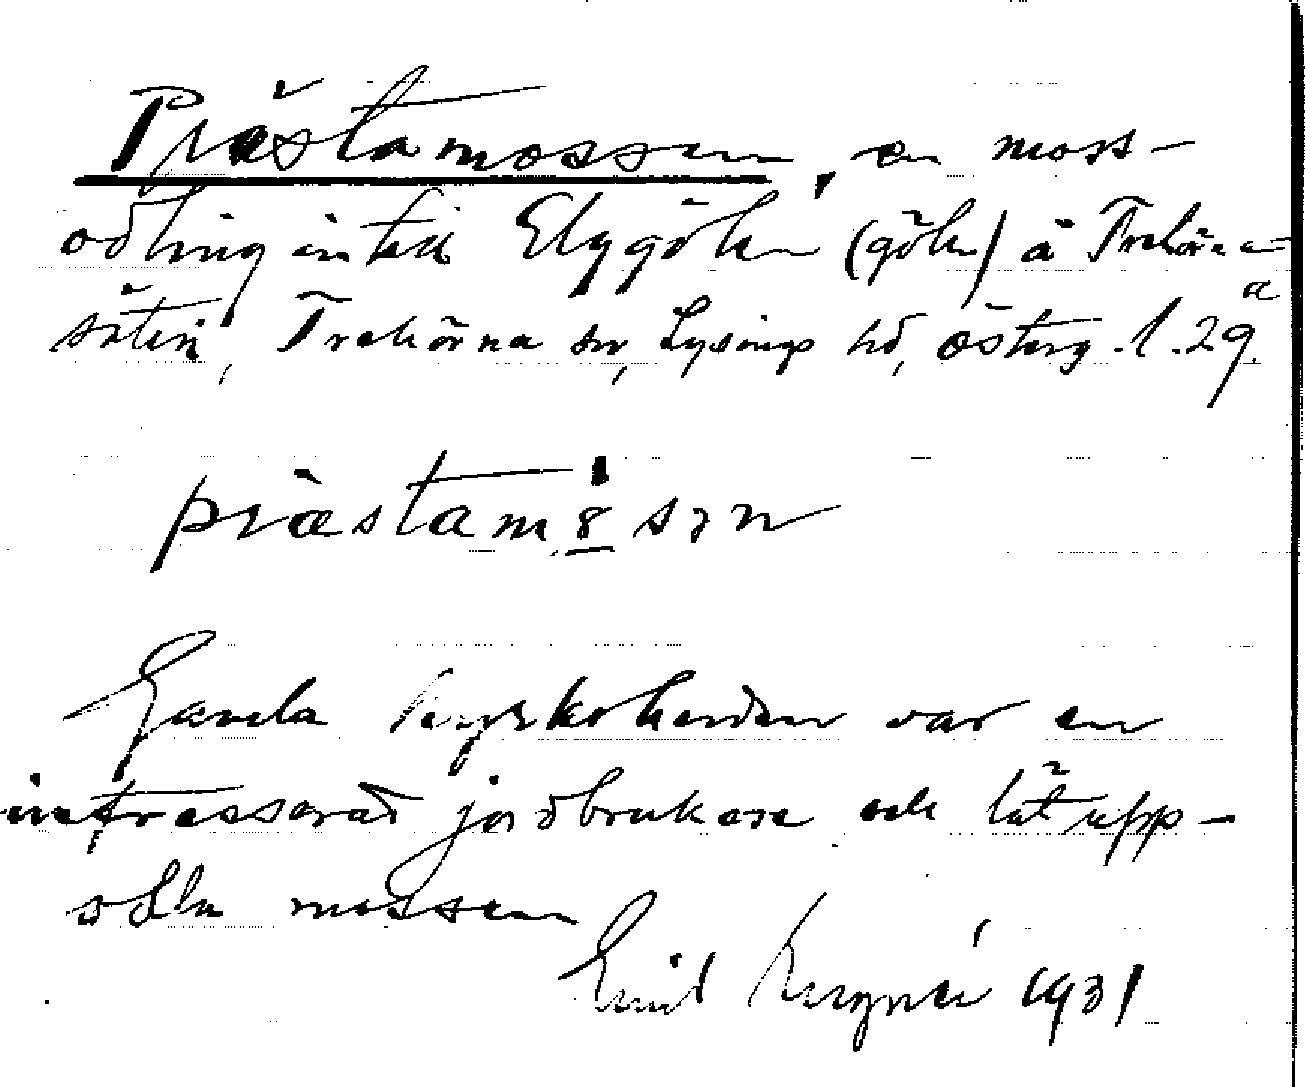 Prästamossen, en moss-
odling intill Elggölen (göln) å Trehörna
säteri, Trehörna sn, Lysings hd, Österg. l. 29.
a
prästamåsən
Gamla kyrkoherden var en
intresserad jordbrukare och lät upp-
odla mossen
Emil 1931